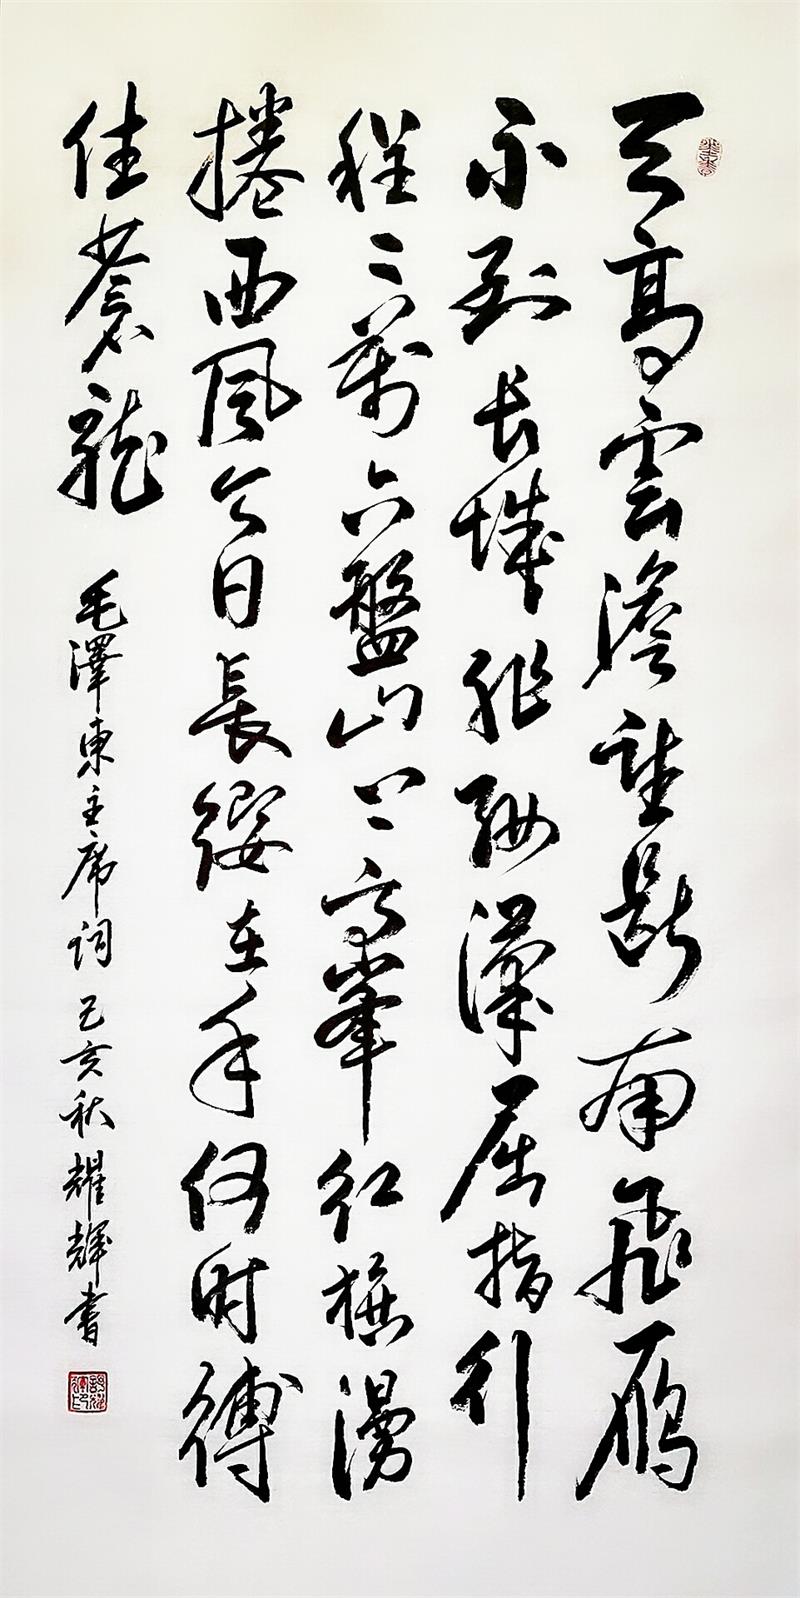 天高雲澹望斷南飛雁
不到長城非好漢屈指行
程二萬六盤山上高峯紅旗漫
捲西風今日長纓在手何時縛
住蒼龍
毛澤東主席詞 己亥秋耀輝書